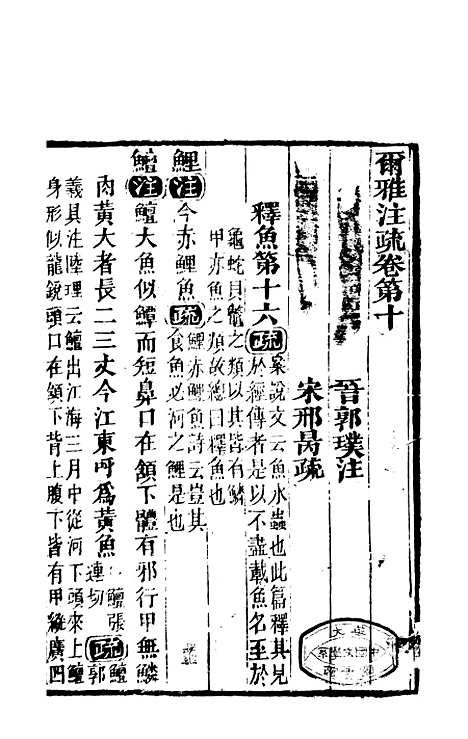 爾雅注疏卷第十
晉郭璞注
宋邢昺疏
釋魚第十六疏案說文云魚水蟲也此篇釋其見
於經傳者是以不盡載魚名至於
龜蛇貝鼈之類以其皆有鱗
甲亦魚之類故緫曰釋魚也
鯉注今赤鯉魚疏鯉赤鯉魚詩云豈其
食魚必河之鯉是也
鱣注鱣大魚似鱏而短鼻口在頷下體有邪行甲無鱗
肉黃大者長二三丈今江東呼爲黃魚鱣張
連切疏鱣郭
義具注陸璣云鱣出江海三月中從河下頭來上鱣
身形似龍銳頭口在頷下背上腹下皆有甲縱廣四